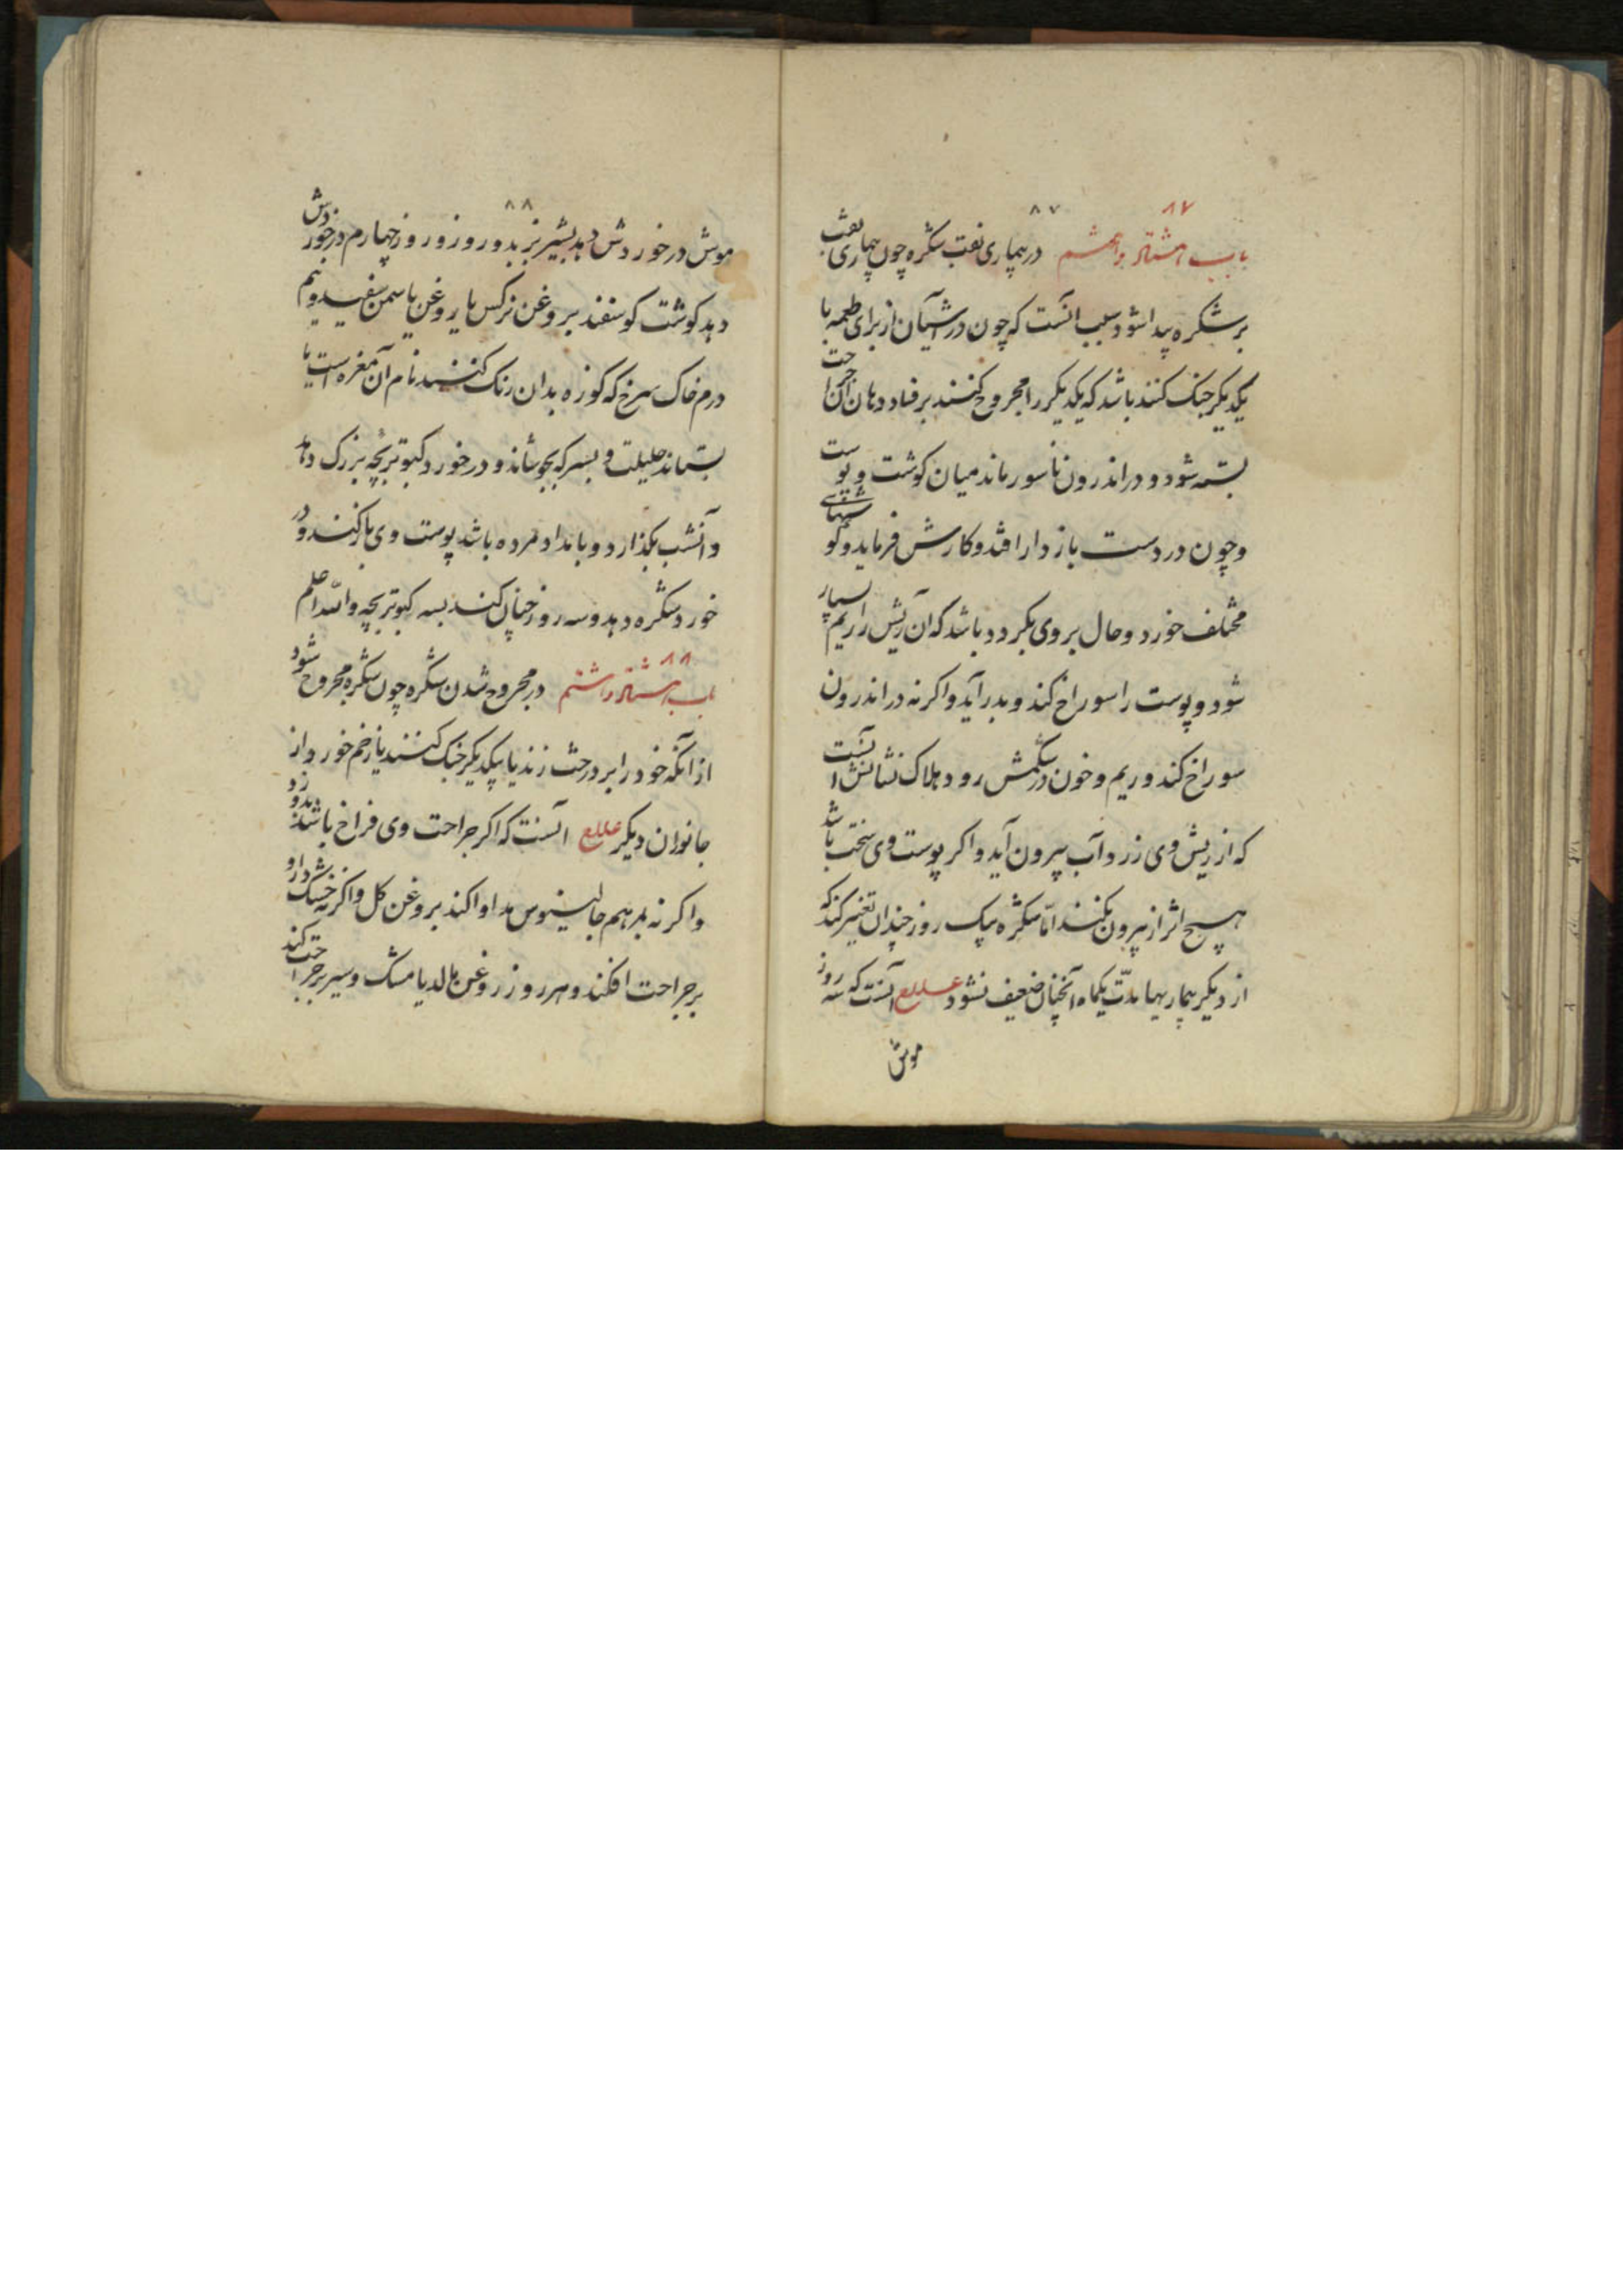 ۸۷ ۸۷
باب هشتاد و هفتم در بیماری نقب شکره چون بیماری نقب
بر شکره پیدا شود سبب آنست که چون در آشیان از برای طعمه با
یکدیکر جنک کنند باشد که یکدیکر را مجروح کنند بر فساد دهان آن جراحت
بسته شود و در اندرون ناسور ماند میان کوشت و پوست
و چون در دست بازدار افتد و کارش فرماید و کوشتهای
مختلف خورد و حال بر وی بکردد باشد که آن ریش را ریم بسیار
شود و پوست را سوراخ کند و بدر آید و اکر نه در اندرون
سوراخ کند و ریم و خون در شکمش رود و هلاک نشانش آنست
که از ریش وی زرد آب بیرون آید و اکر پوست وی سخت باشد
هیچ اثر از بیرون نکند اما شکره بیک روز چندان تغییر کند که
از دیکر بیماریها مدت یکماه آنچنان ضعیف نشود علاج آنست که سه روز
موش
۸۸
موش در خوردش دهد بشیر بز بدو روز و روز چهارم در خوردش
دهد کوشت کوسفند بروغن نرکس یا روغن یاسمن سفید و نیم
درم خاک سرخ که کوزه بدان رنک کنند نام آن مغره است یا
بستاند حلیلت و بسرکه بجوشاند و در خورد کبوتربچه بزرک دهد
و آنشب بکذارد و بامداد مرده باشد پوست وی باز کنند و در
خورد شکره دهد و سه روز چنان کند بسه کبوتربچه والله اعلم
۸۸
باب هشتاد و هشتم در مجروح شدن شکره چون شکره مجروح شود
از آنکه خود را بر درخت زند یا بیکدیکر جنک کنند یا زخم خورد از
جانوران دیکر علاج آنست که اکر جراحت وی فراخ باشد بدوزد
و اکر نه بمرهم جالینوس مداوا کند بروغن کل و اکر نه خشک دارو
بر جراحت افکند و هر روز روغن مالد یا مشک و سیر بر جراحت کند